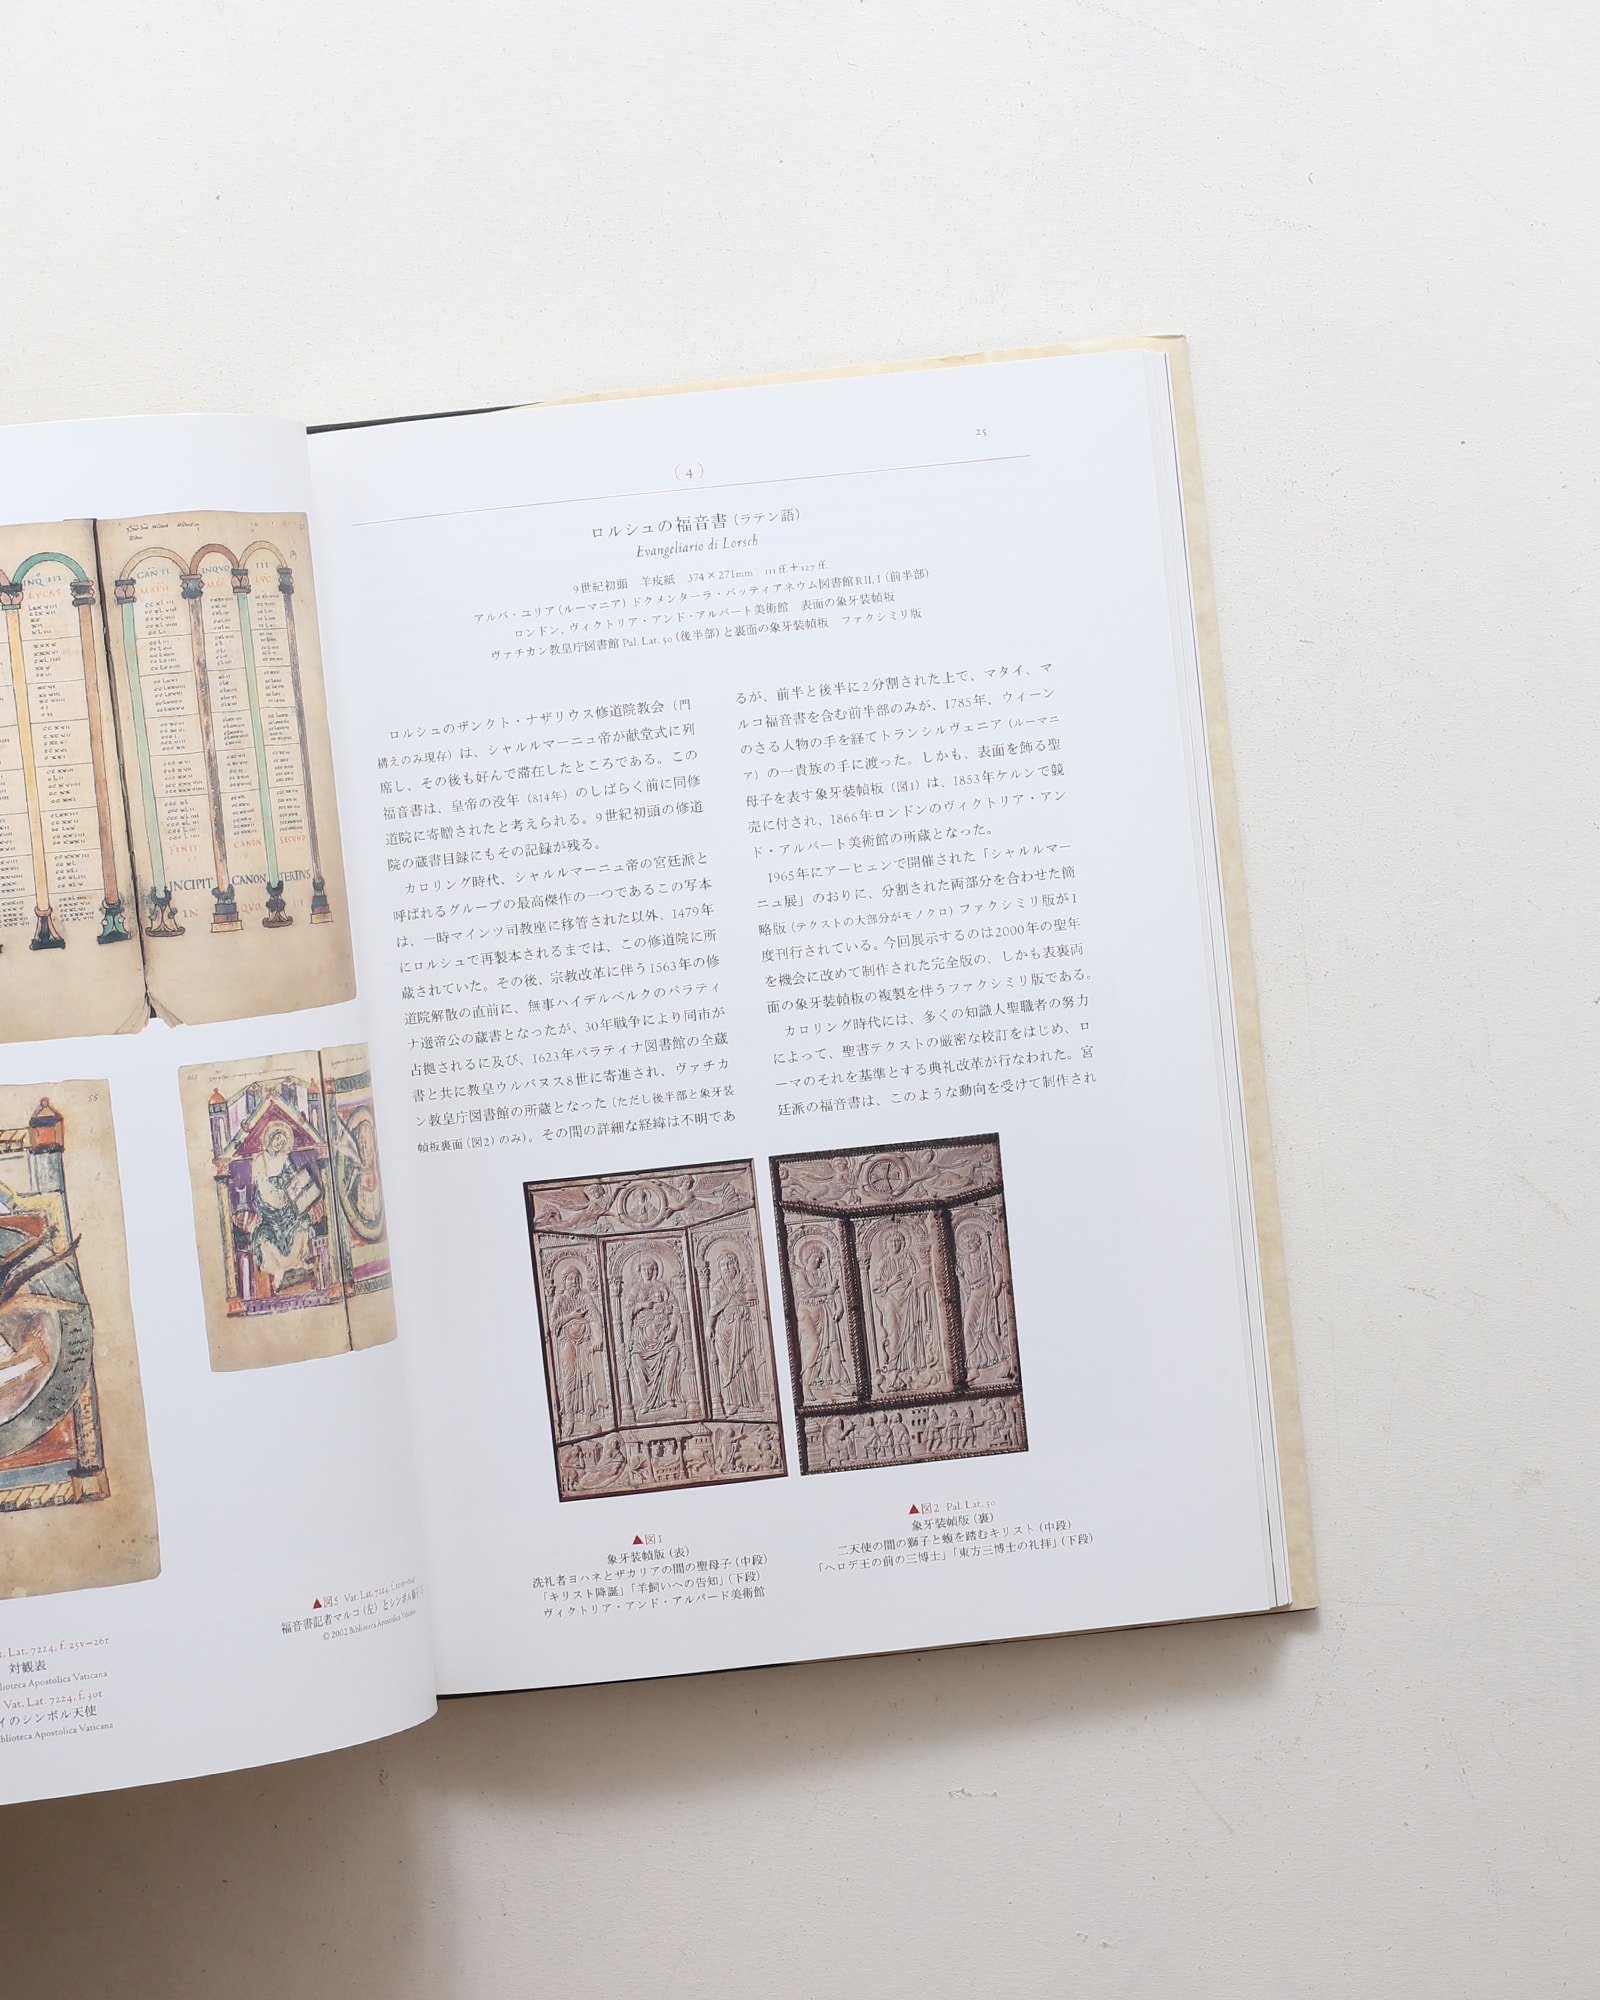 CAN II
INQVO
III
INQ III
LVCAS
MATH
LVC
FINIT
CANON
SECUND
INCIPIT CANON TERTIVS
IN QVO III
55
▲図5 Vat. Lat. 7224,
福音書記者マルコ（左）とシンボル
© 2002 Biblioteca Apostolica Vaticana
Lat. 7224, f. 25v–26r
対観表
Apostolica Vaticana
Vat. Lat. 7224, f. 30r
イのシンボル天使
Apostolica Vaticana
25
（4）
ロルシュの福音書（ラテン語）
Evangeliario di Lorsch
9世紀初頭　羊皮紙　374×271mm　111 ff.＋127 ff.
アルバ・ユリア（ルーマニア）ドクメンターラ・バッティアネウム図書館 R II, I（前半部）
ロンドン、ヴィクトリア・アンド・アルバート美術館　表面の象牙装幀板
ヴァチカン教皇庁図書館 Pal. Lat. 50（後半部）と裏面の象牙装幀板　ファクシミリ版
ロルシュのザンクト・ナザリウス修道院教会（門
構えのみ現存）は、シャルルマーニュ帝が献堂式に列
席し、その後も好んで滞在したところである。この
福音書は、皇帝の没年（814年）のしばらく前に同修
道院に寄贈されたと考えられる。9世紀初頭の修道
院の蔵書目録にもその記録が残る。
カロリング時代、シャルルマーニュ帝の宮廷派と
呼ばれるグループの最高傑作の一つであるこの写本
は、一時マインツ司教座に移管された以外、1479年
にロルシュで再製本されるまでは、この修道院に所
蔵されていた。その後、宗教改革に伴う1563年の修
道院解散の直前に、無事ハイデルベルクのパラティ
ナ選帝公の蔵書となったが、30年戦争により同市が
占拠されるに及び、1623年パラティナ図書館の全蔵
書と共に教皇ウルバヌス8世に寄進され、ヴァチカ
ン教皇庁図書館の所蔵となった（ただし後半部と象牙装
幀板裏面（図2）のみ）。その間の詳細な経緯は不明であ
るが、前半と後半に2分割された上で、マタイ、マ
ルコ福音書を含む前半部のみが、1785年、ウィーン
のさる人物の手を経てトランシルヴェニア（ルーマニ
ア）の一貴族の手に渡った。しかも、表面を飾る聖
母子を表す象牙装幀板（図1）は、1853年ケルンで競
売に付され、1866年ロンドンのヴィクトリア・アン
ド・アルバート美術館の所蔵となった。
1965年にアーヒェンで開催された「シャルルマー
ニュ展」のおりに、分割された両部分を合わせた簡
略版（テクストの大部分がモノクロ）ファクシミリ版が1
度刊行されている。今回展示するのは2000年の聖年
を機会に改めて制作された完全版の、しかも表裏両
面の象牙装幀板の複製を伴うファクシミリ版である。
カロリング時代には、多くの知識人聖職者の努力
によって、聖書テクストの厳密な校訂をはじめ、ロ
ーマのそれを基準とする典礼改革が行なわれた。宮
廷派の福音書は、このような動向を受けて制作され
▲図1
象牙装幀版（表）
洗礼者ヨハネとザカリアの間の聖母子（中段）
「キリスト降誕」「羊飼いへの告知」（下段）
ヴィクトリア・アンド・アルバード美術館
▲図2 Pal. Lat. 50
象牙装幀版（裏）
二天使の間の獅子と蝮を踏むキリスト（中段）
「ヘロデ王の前の三博士」「東方三博士の礼拝」（下段）